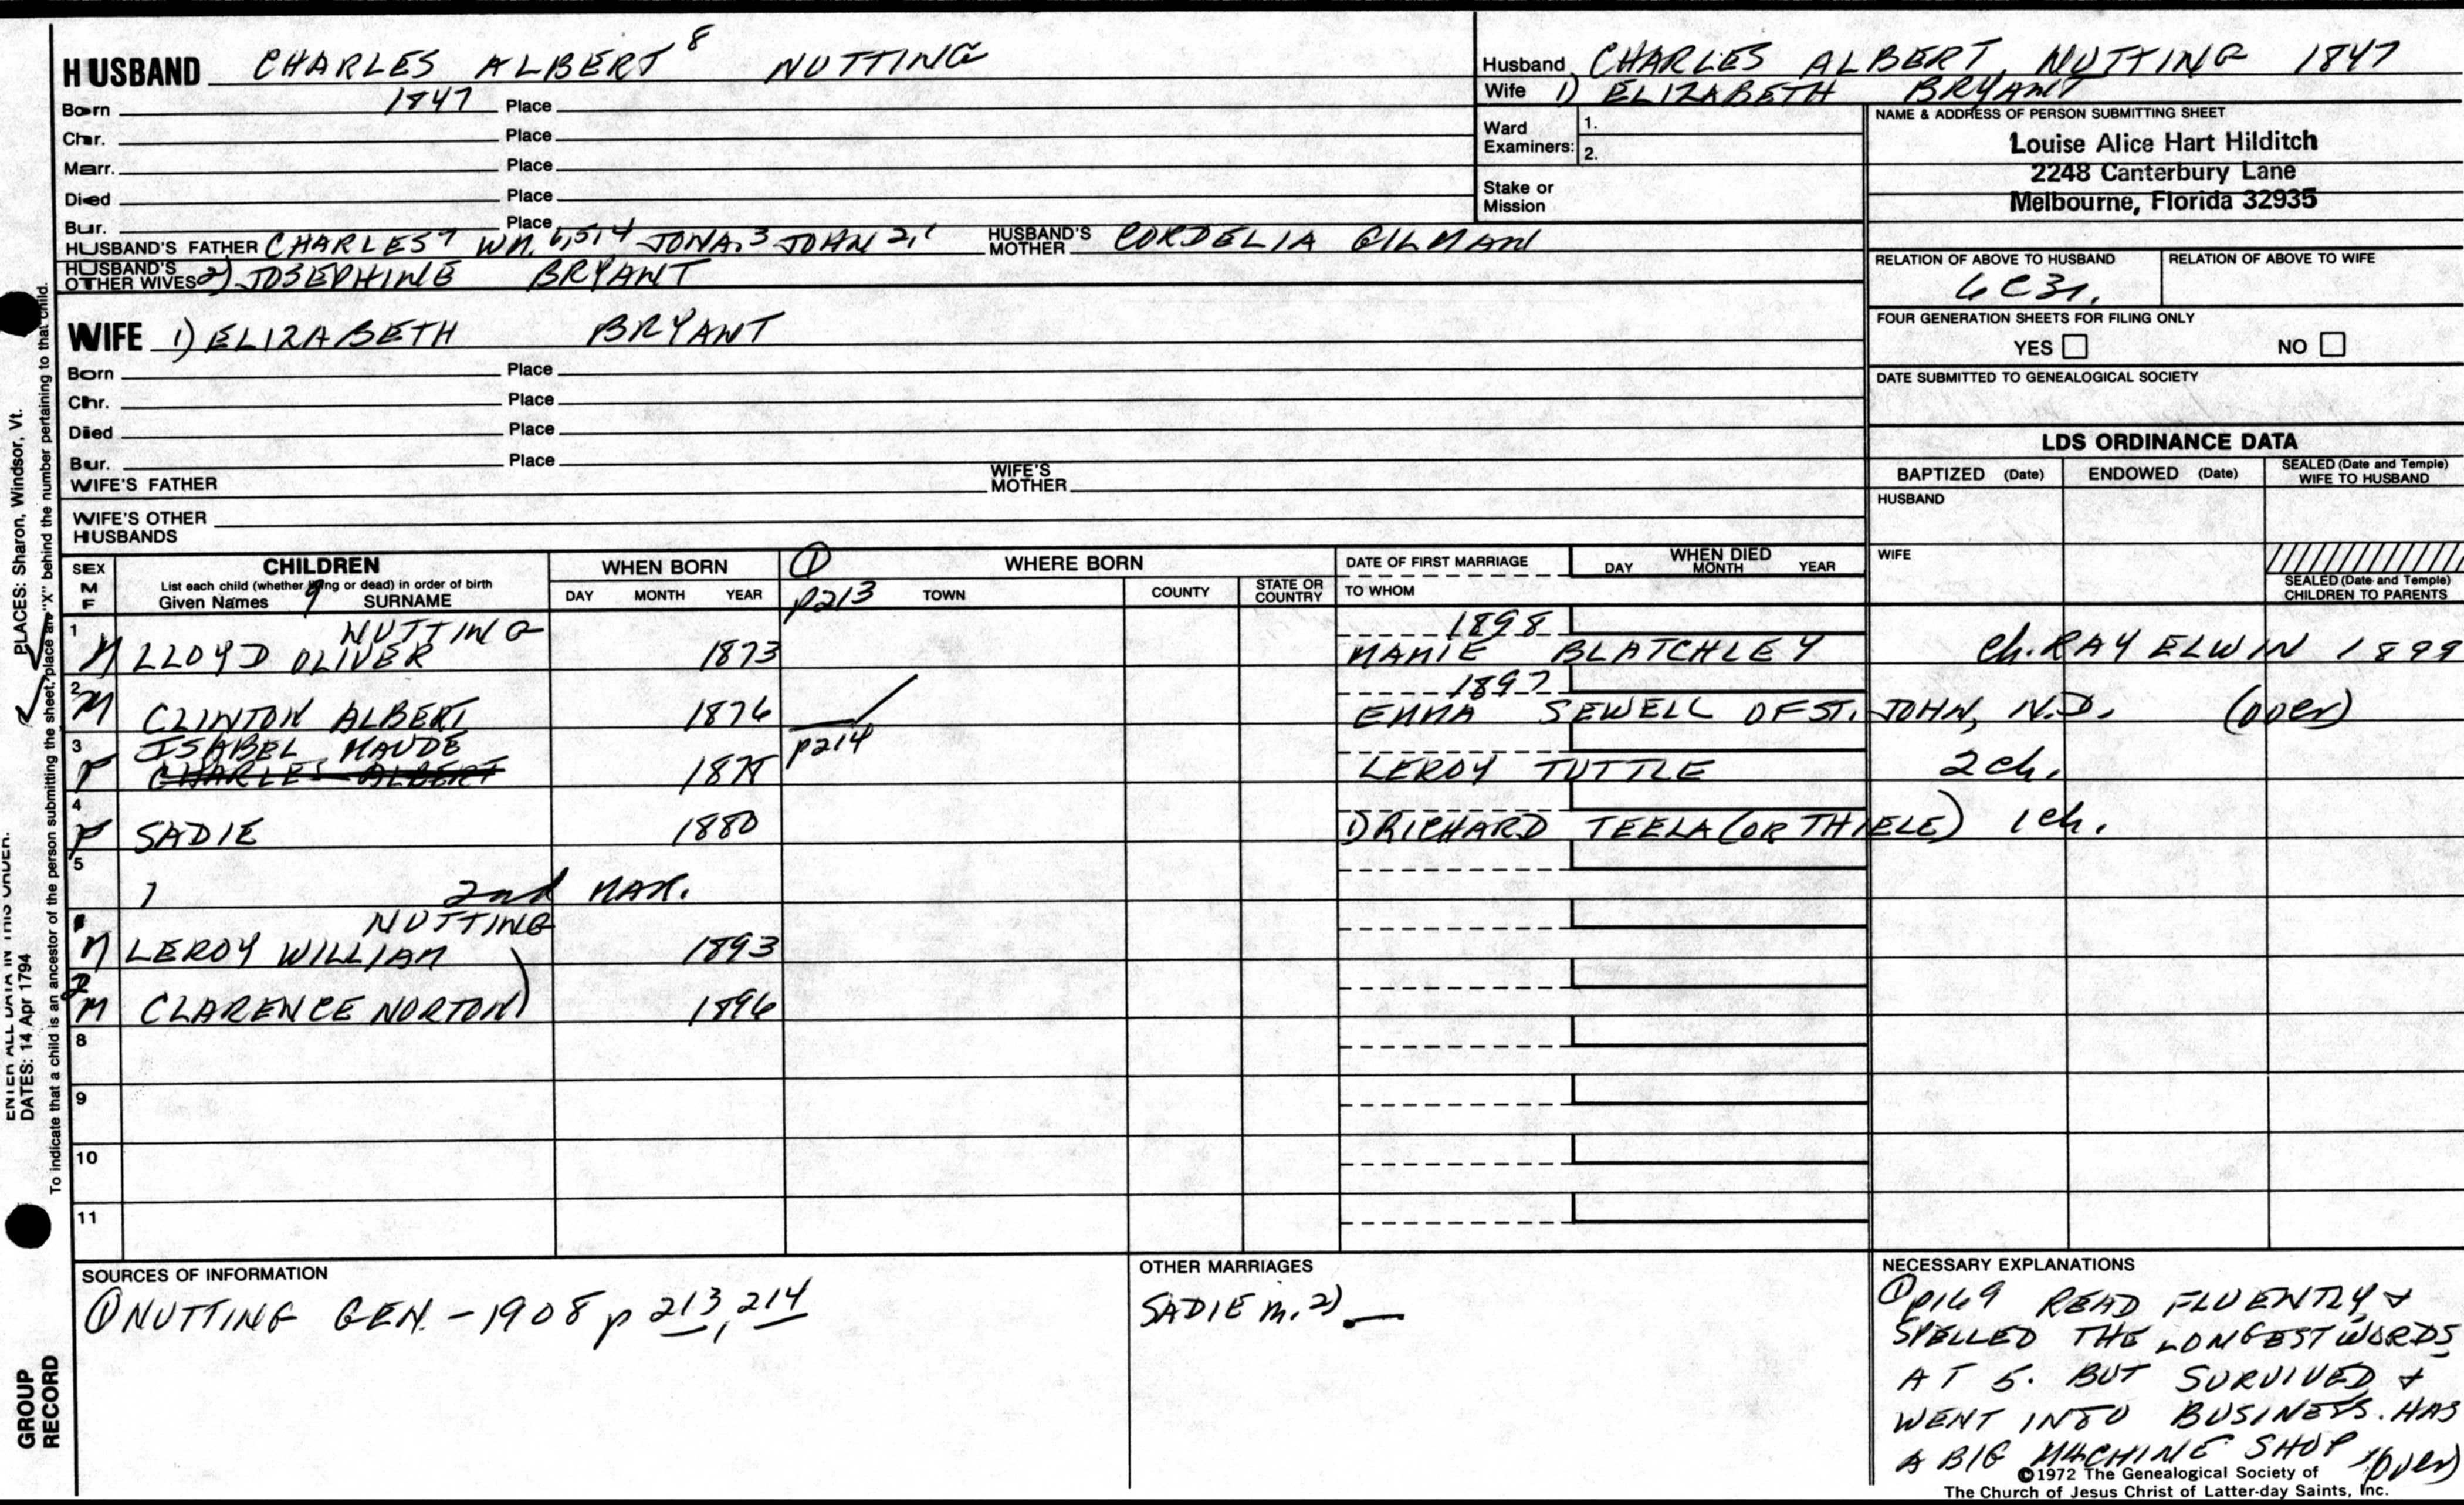 HUSBAND CHARLES ALBERT 8 NUTTING
Born 1847 Place
Chr. Place
Marr. Place
Died Place
Bur. Place
HUSBAND'S FATHER CHARLES 7 WM. 6,5,4 JONA. 3 JOHN 2,1 HUSBAND'S MOTHER CORDELIA GILMAN
HUSBAND'S OTHER WIVES 2) JOSEPHINE BRYANT
Husband CHARLES ALBERT NUTTING 1847
Wife 1) ELIZABETH BRYANT
Ward Examiners: 1.
2.
Stake or Mission
NAME & ADDRESS OF PERSON SUBMITTING SHEET
Louise Alice Hart Hilditch
2248 Canterbury Lane
Melbourne, Florida 32935
RELATION OF ABOVE TO HUSBAND RELATION OF ABOVE TO WIFE
6C3r.
FOUR GENERATION SHEETS FOR FILING ONLY
YES NO
DATE SUBMITTED TO GENEALOGICAL SOCIETY
WIFE 1) ELIZABETH BRYANT
Born Place
Chr. Place
Died Place
Bur. Place
WIFE'S FATHER WIFE'S MOTHER
WIFE'S OTHER HUSBANDS
LDS ORDINANCE DATA
BAPTIZED (Date) ENDOWED (Date) SEALED (Date and Temple) WIFE TO HUSBAND
HUSBAND
WIFE
SEALED (Date and Temple) CHILDREN TO PARENTS
SEX M F
CHILDREN
List each child (whether living or dead) in order of birth
Given Names 9 SURNAME
WHEN BORN
DAY MONTH YEAR
① p213
WHERE BORN
TOWN COUNTY STATE OR COUNTRY
DATE OF FIRST MARRIAGE
TO WHOM
WHEN DIED
DAY MONTH YEAR
NUTTING 1898
1 M LLOYD OLIVER 1873 MAMIE BLATCHLEY Ch. RAY ELWIN 1899
1897
2 M CLINTON ALBERT 1876 EMMA SEWELL OF ST. JOHN, N.D. (over)
3 ISABEL MAUDE p214
F CHARLES ALBERT 1878 LEROY TUTTLE 2 ch.
4 F SADIE 1880 1) RICHARD TEELA (OR THIELE) 1 ch.
5
2nd MAR.
NUTTING
M LEROY WILLIAM 1893
2 M CLARENCE NORTON 1896
8
9
10
11
SOURCES OF INFORMATION
① NUTTING GEN. - 1908 p 213, 214
OTHER MARRIAGES
SADIE m. 2)
NECESSARY EXPLANATIONS
① p169 READ FLUENTLY &
SPELLED THE LONGEST WORDS
AT 5. BUT SURVIVED &
WENT INTO BUSINESS. HAS
A BIG MACHINE SHOP (over)
©1972 The Genealogical Society of
The Church of Jesus Christ of Latter-day Saints, Inc.
PLACES: Sharon, Windsor, Vt.
ENTER ALL DATA IN THIS ORDER:
DATES: 14 Apr 1794
To indicate that a child is an ancestor of the person submitting the sheet, place an "X" behind the number pertaining to that child.
GROUP RECORD